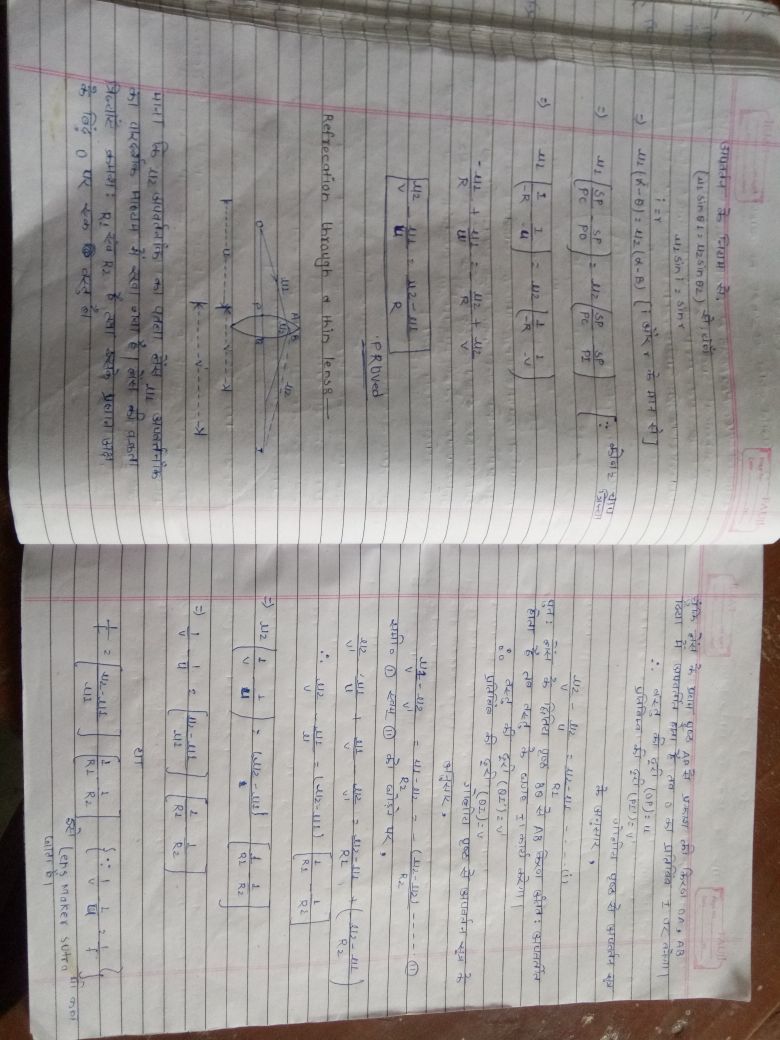 अपवर्तन के नियम से,
(μ1 sinθ1 = μ2 sinθ2) से,
i = r
μ2 sin i = sin r
=) μ2 (α-θ) = μ2 (α-β) [i और r के मान से]
=) μ1 (SP/PC - SP/PO) = μ2 (SP/PC - SP/PI) [∵ कोण = चाप/त्रिज्या
=) μ2 (1/-R 1/-u) = μ2 (1/-R 1/-v)
-μ2/R + μ1/u = -μ2/R + μ2/v
μ2/v - μ1/u = μ2-μ1/R
PROVed
Refrecation through a thin lens8 —
μ1 A B
μ2 μ2
O P Q I
u v
v'
माना कि μ2 अपवर्तनांक का पतला लेंस μ1 अपवर्तनांक
का पारदर्शक माध्यम में रखा गया है। लेंस की वक्रता
त्रिज्याएँ क्रमशः R1 एवं R2 है तथा उसके प्रधान अक्ष
के बिंदु O पर एक वस्तु है।
चूँकि लेंस के प्रथम पृष्ठ AP से प्रकाश की किरण OA, AB
दिशा में अपवर्तित होता है तब O का प्रतिबिंब I' पर बनेगा।
∴ वस्तु की दूरी (OP) = u
प्रतिबिम्ब की दूरी (PI') = v'
गोलीय पृष्ठ से अपवर्तन सूत्र
के अनुसार,
μ2/v' - μ1/u = μ2-μ1/R1 - - - - (i)
पुनः लेंस के द्वितीय पृष्ठ BQ से AB किरण अंततः अपवर्तित
होता है तब वस्तु के जगह I' कार्य करेगा।
∴ वस्तु की दूरी (QI') = v'
प्रतिबिंब की दूरी (QI) = v
गोलीय पृष्ठ से अपवर्तन सूत्र के
अनुसार,
μ1/v - μ2/v' = μ1-μ2/R2 = - (μ2-μ1)/R2 - - - - - (ii)
समी० (i) एवम (ii) को जोड़ने पर,
μ2/v' - μ1/u + μ1/v - μ2/v' = μ2-μ1/R1 + (μ2-μ1/R2)
∴ μ2/v - μ1/u = (μ2-μ1) [1/R1 - 1/R2]
=) μ2 (1/v - 1/u) = (μ2-μ1) [1/R1 1/R2]
=) 1/v - 1/u = [μ2-μ1/μ1] [1/R1 1/R2]
या
1/f = [μ2-μ1/μ1] [1/R1 - 1/R2] {∵ 1/v - 1/u = 1/f}
इसे lens maker sutra भी कहा
जाता है।